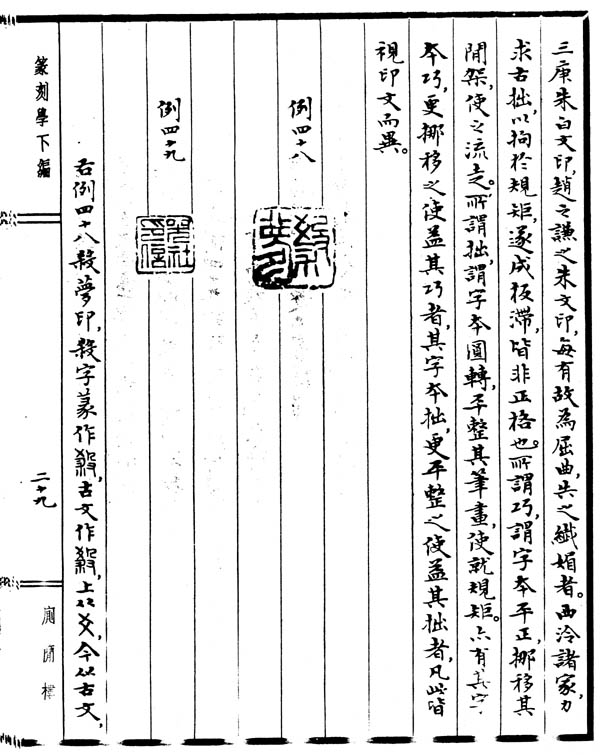 三庚朱白文印,趙之謙之朱文印,每有故為屈曲,失之纖媚者。西泠諸家,力
求古拙,以拘於規矩,遂成板滯,皆非正格也。所謂巧,謂字本平正,挪移其
間架,使之流走。所謂拙,謂字本圓轉,平整其筆畫,使就規矩。亦有其字
本巧,更挪移之使益其巧者,其字本拙,更平整之使益其拙者,凡此皆
視印文而異。
例四十八
例四十九
右例四十八殺夢印,殺字篆作殺,古文作殺,上从爻,今从古文,
篆刻學下編
二十九